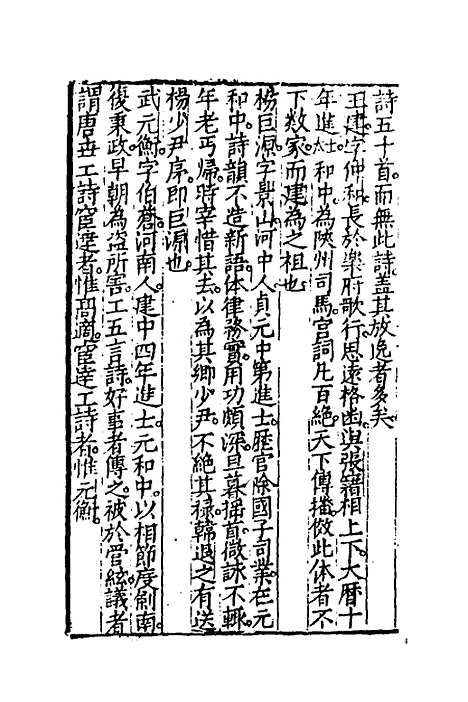 詩五十首而無此詩蓋其放逸者多矣
王建字仲和長於樂府歌行思遠格幽與張籍相上下大曆十
年進士太和中為陝州司馬宫詞凡百絶天下傳播倣此体者不
下數家而建為之祖也
楊巨源字景山河中人貞元中第進士歷官除國子司業在元
和中詩韻不造新語体律務實用功頗深旦暮搖首微詠不輟
年老丐歸時宰惜其去以為其鄉少尹不絶其禄韓退之有送
楊少尹序即巨源也
武元衡字伯蒼河南人建中四年進士元和中以相節度劎南
後秉政早朝為盗所害工五言詩好事者傳之被於管絃議者
謂唐世工詩宦逹者惟高適宦逹工詩者惟元衡